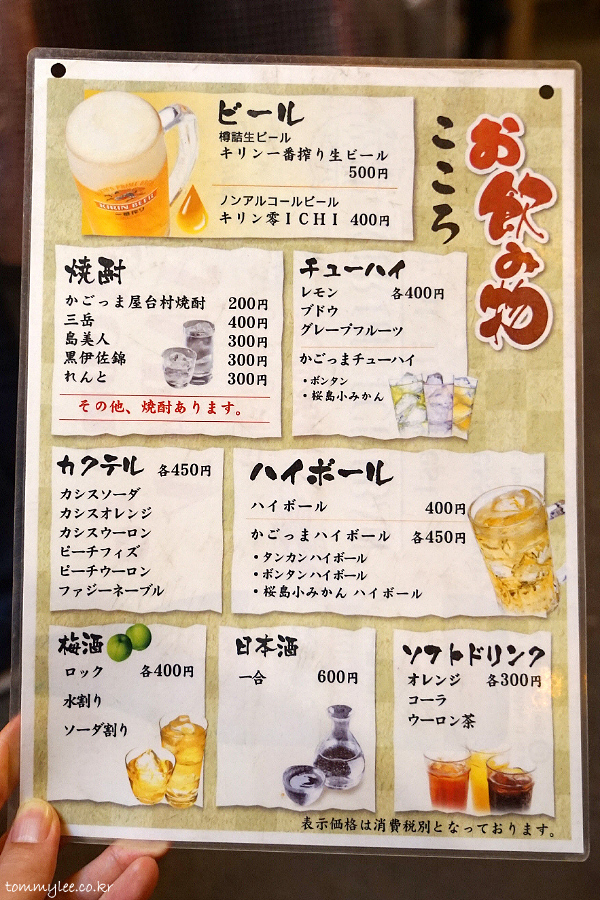 お飲み物
こころ
ビール
樽詰生ビール
キリン一番搾り生ビール
500円
ノンアルコールビール
キリン零ICHI 400円
KIRIN BEER
一番搾り
焼酎
かごっま屋台村焼酎 200円
三岳 400円
島美人 300円
黒伊佐錦 300円
れんと 300円
その他、焼酎あります。
チューハイ
レモン 各400円
ブドウ
グレープフルーツ
かごっまチューハイ
・ボンタン
・桜島小みかん
カクテル 各450円
カシスソーダ
カシスオレンジ
カシスウーロン
ピーチフィズ
ピーチウーロン
ファジーネーブル
ハイボール
ハイボール 400円
かごっまハイボール 各450円
・タンカンハイボール
・ボンタンハイボール
・桜島小みかん ハイボール
梅酒
ロック 各400円
水割り
ソーダ割り
日本酒
一合 600円
ソフトドリンク
オレンジ 各300円
コーラ
ウーロン茶
表示価格は消費税別となっております。
tommylee.co.kr